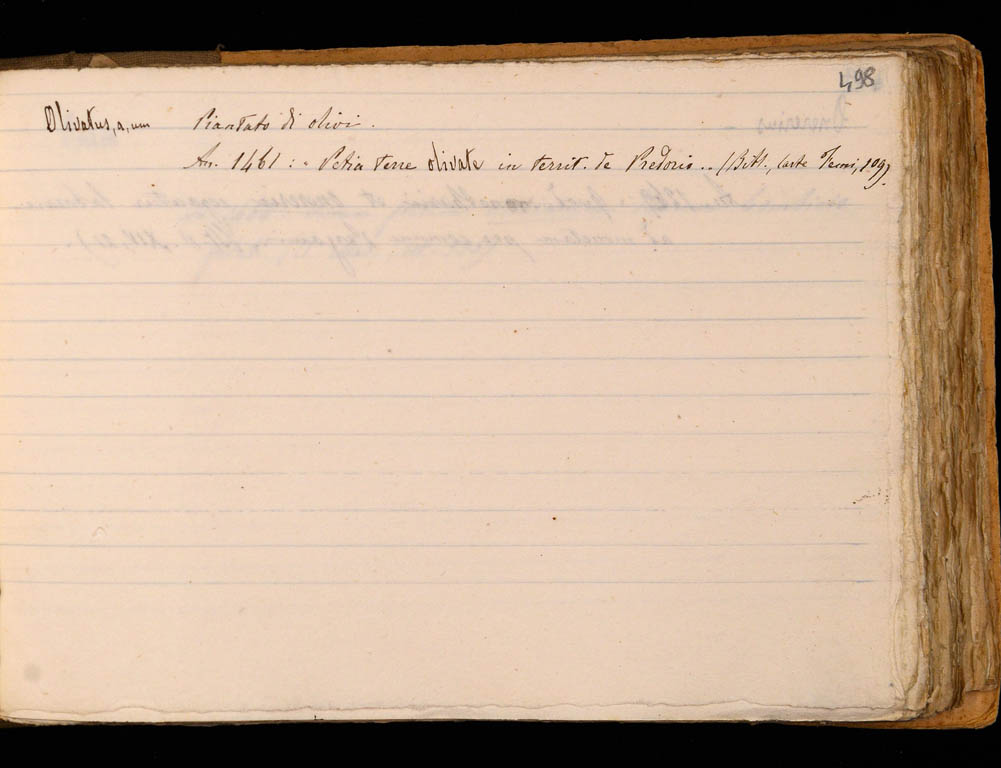 498
Olivatus, a, um Piantato di olivi.
An. 1461: " Petia terre olivate in territ. de Predorio .. (Bibl., Carte